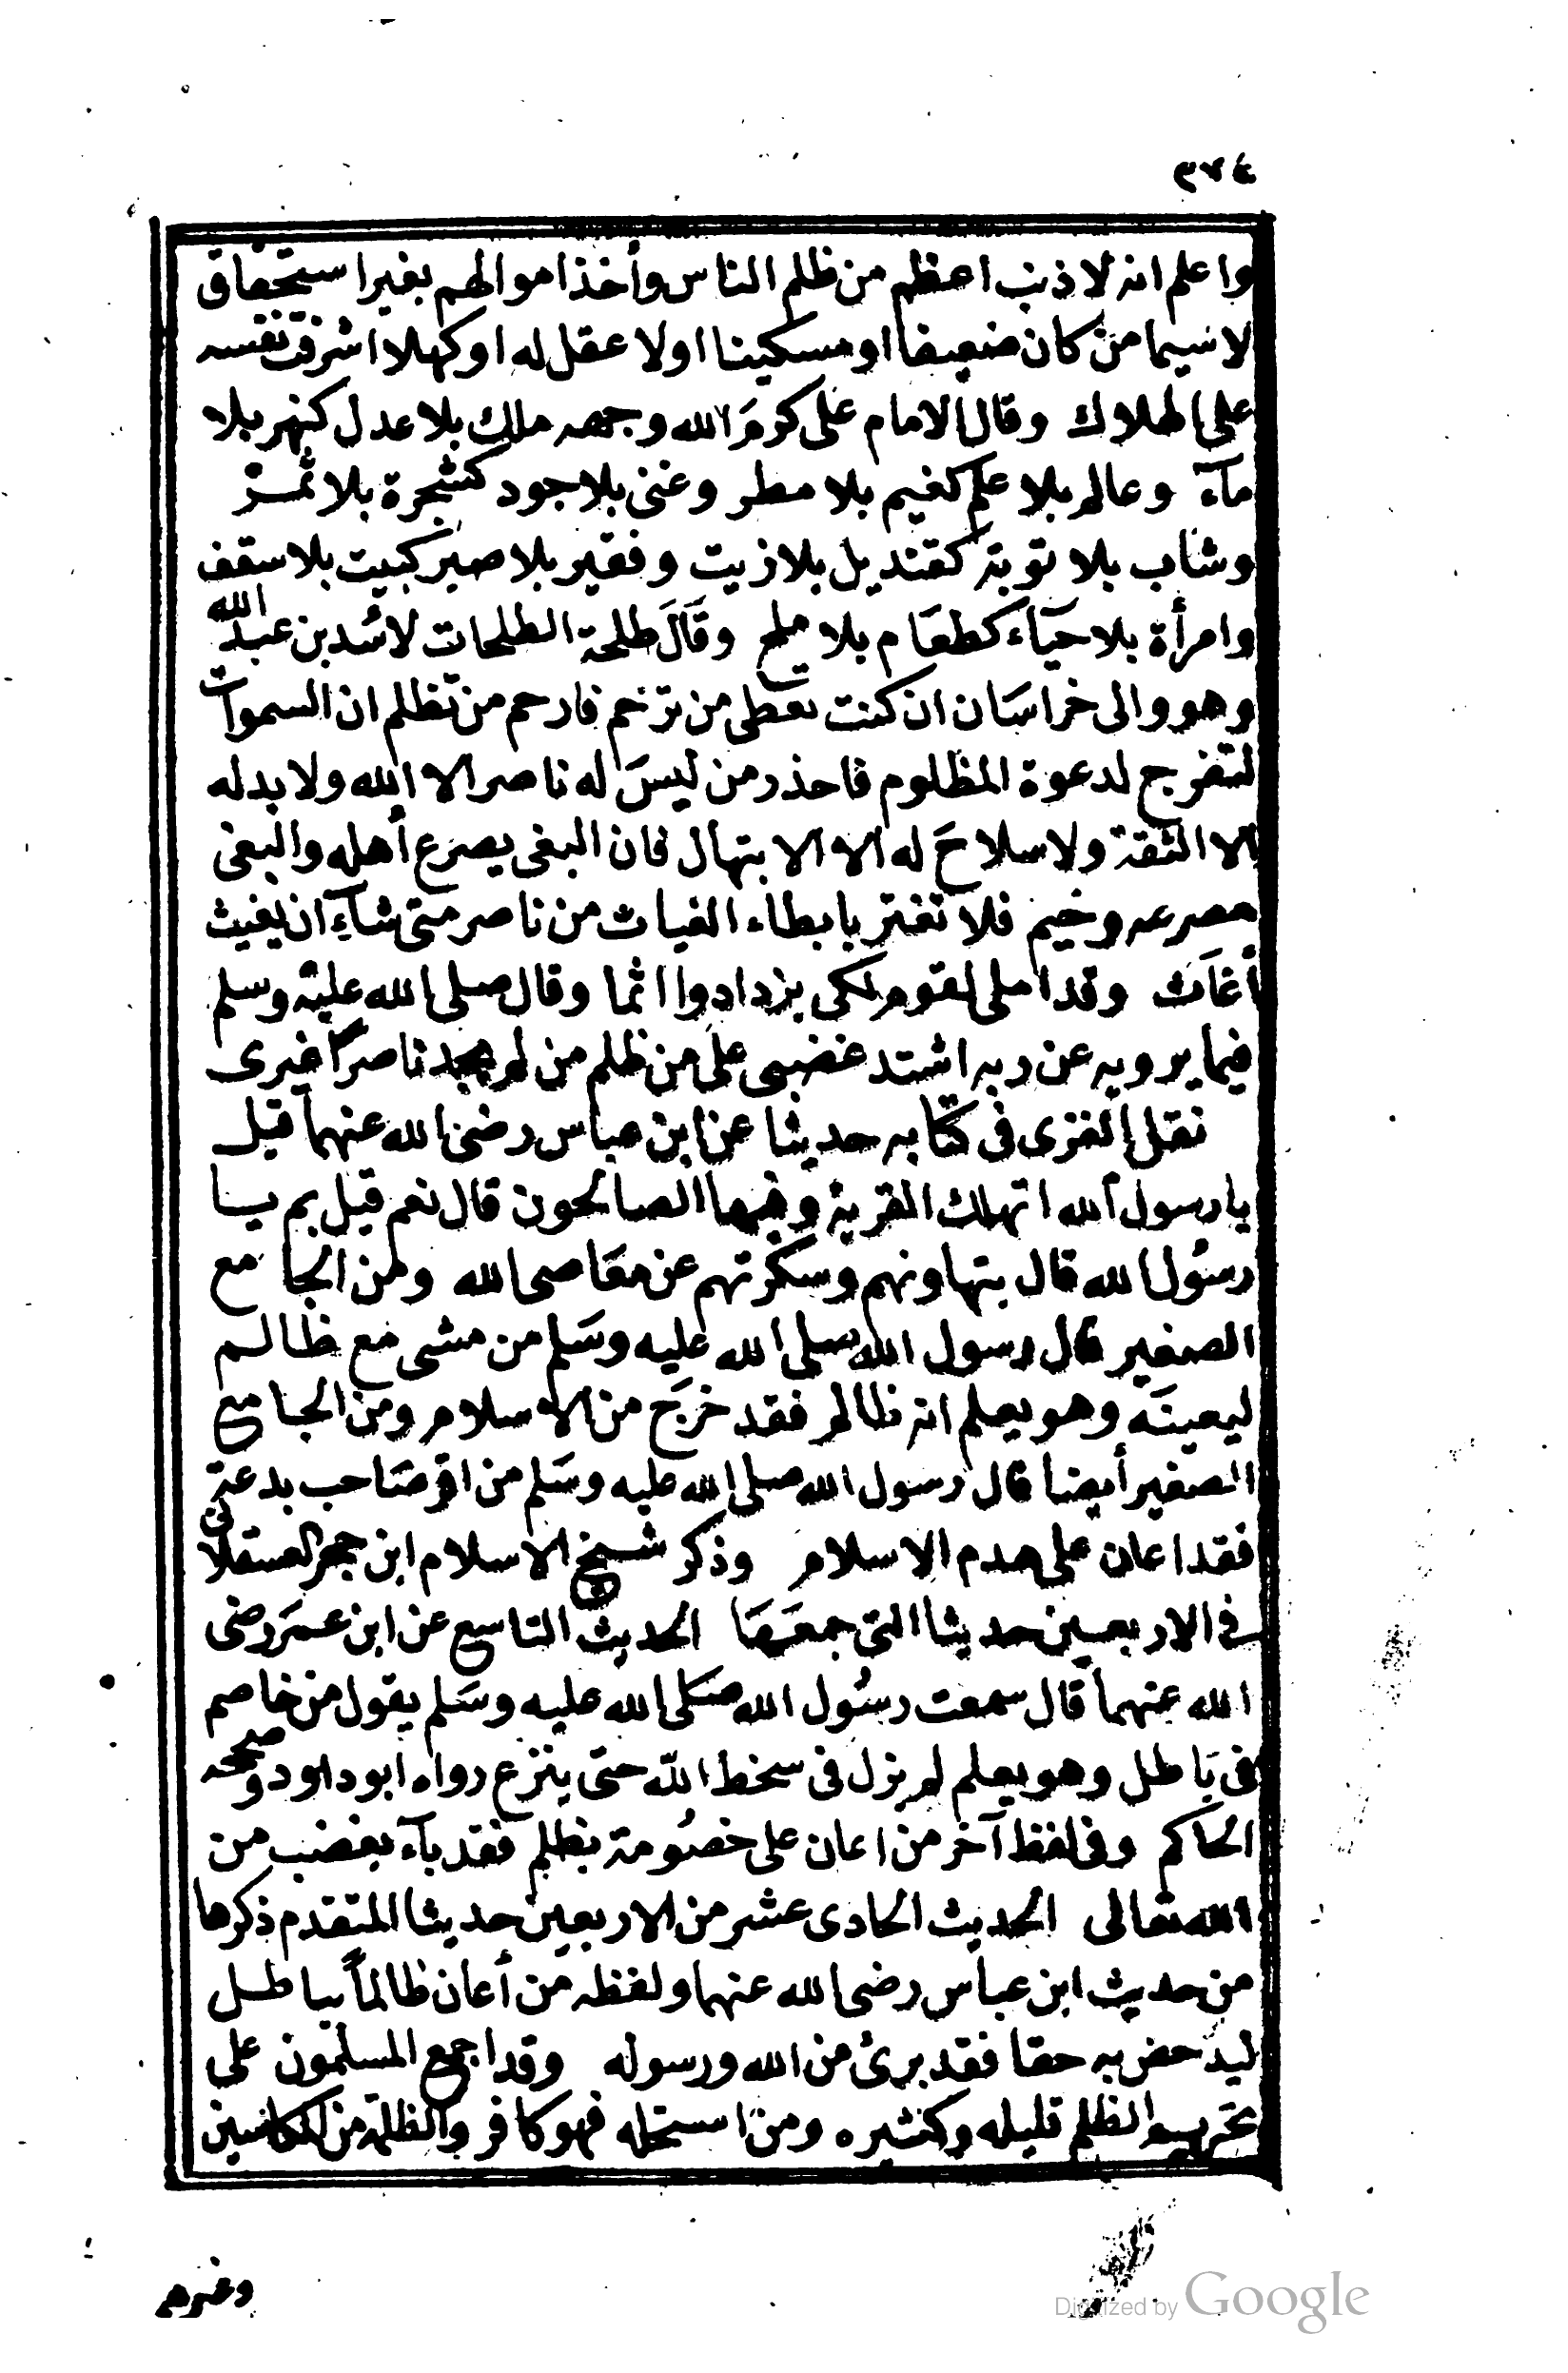 ٣٧٤
واعلم انه لا ذنب اعظم من ظلم الناس وأخذ اموالهم بغير استحقاق
لا سيما من كان ضعيفا او مسكينا او لا عقل له او كهلا اشرفت نفسه
على الهلاك وقال الامام على كرم الله وجهه ملك بلا عدل كنهر بلا
مآء وعالم بلا علم كغيم بلا مطر وغنى بلا جود كشجرة بلا ثمر
وشاب بلا توبة كقنديل بلا زيت وفقير بلا صبر كبيت بلا سقف
وامرأة بلا حيآء كطعام بلا ملح وقَالَ طلحة الطلحات لاسد بن عبد الله
وهو والى خراسان ان كنت تعطى من ترحم فارحم من تظلم ان السموات
لتفرج لدعوة المظلوم فاحذر من ليس له ناصر الا الله ولا يد له
الا الثقة ولا سلاح له الا الابتهال فان البغى يصرع أهله والبغى
مصرعه وخيم فلا تغتر بابطاء الغياث من ناصر متى شآء ان يغيث
أغاث وقد املى لقوم لكى يزدادوا اثما وقال صلى الله عليه وسلم
فيما يرويه عن ربه اشتد غضبى على من ظلم من لم يجد ناصرا غيرى
نقل الغزى فى كتابه حديثا عن ابن عباس رضى الله عنهما قيل
يا رسول الله اتهلك القرية وفيها الصالحون قال نعم قيل بم يا
رسول الله قال بتهاونهم وسكرتهم عن معاصى الله ومن الجامع
الصغير قال رسول الله صلى الله عليه وسلم من مشى مع ظالم
ليعينه وهو يعلم انه ظالم فقد خرج من الاسلام ومن الجامع
الصغير أيضا قال رسول الله صلى الله عليه وسلم من اقر صاحب بدعة
فقد اعان على هدم الاسلام وذكر شيخ الاسلام ابن حجر العسقلانى
فى الاربعين حديثا التى جمعها الحديث التاسع عن ابن عمر رضى
الله عنهما قال سمعت رسول الله صلى الله عليه وسلم يقول من خاصم
فى باطل وهو يعلم لم يزل فى سخط الله حتى ينزع رواه ابو داود وصححه
الحاكم وفى لفظ آخر من اعان على خصومة بظلم فقد بآء بغضب من
الله تعالى الحديث الحادى عشر من الاربعين حديثا المتقدم ذكرها
من حديث ابن عباس رضى الله عنهما ولفظه من أعان ظالماً بباطل
ليدحض به حقا فقد برئ من الله ورسوله وقد اجمع المسلمون على
تحريم الظلم قليله وكثيره ومن استحله فهو كافر والظلمة من
Digitized by Google